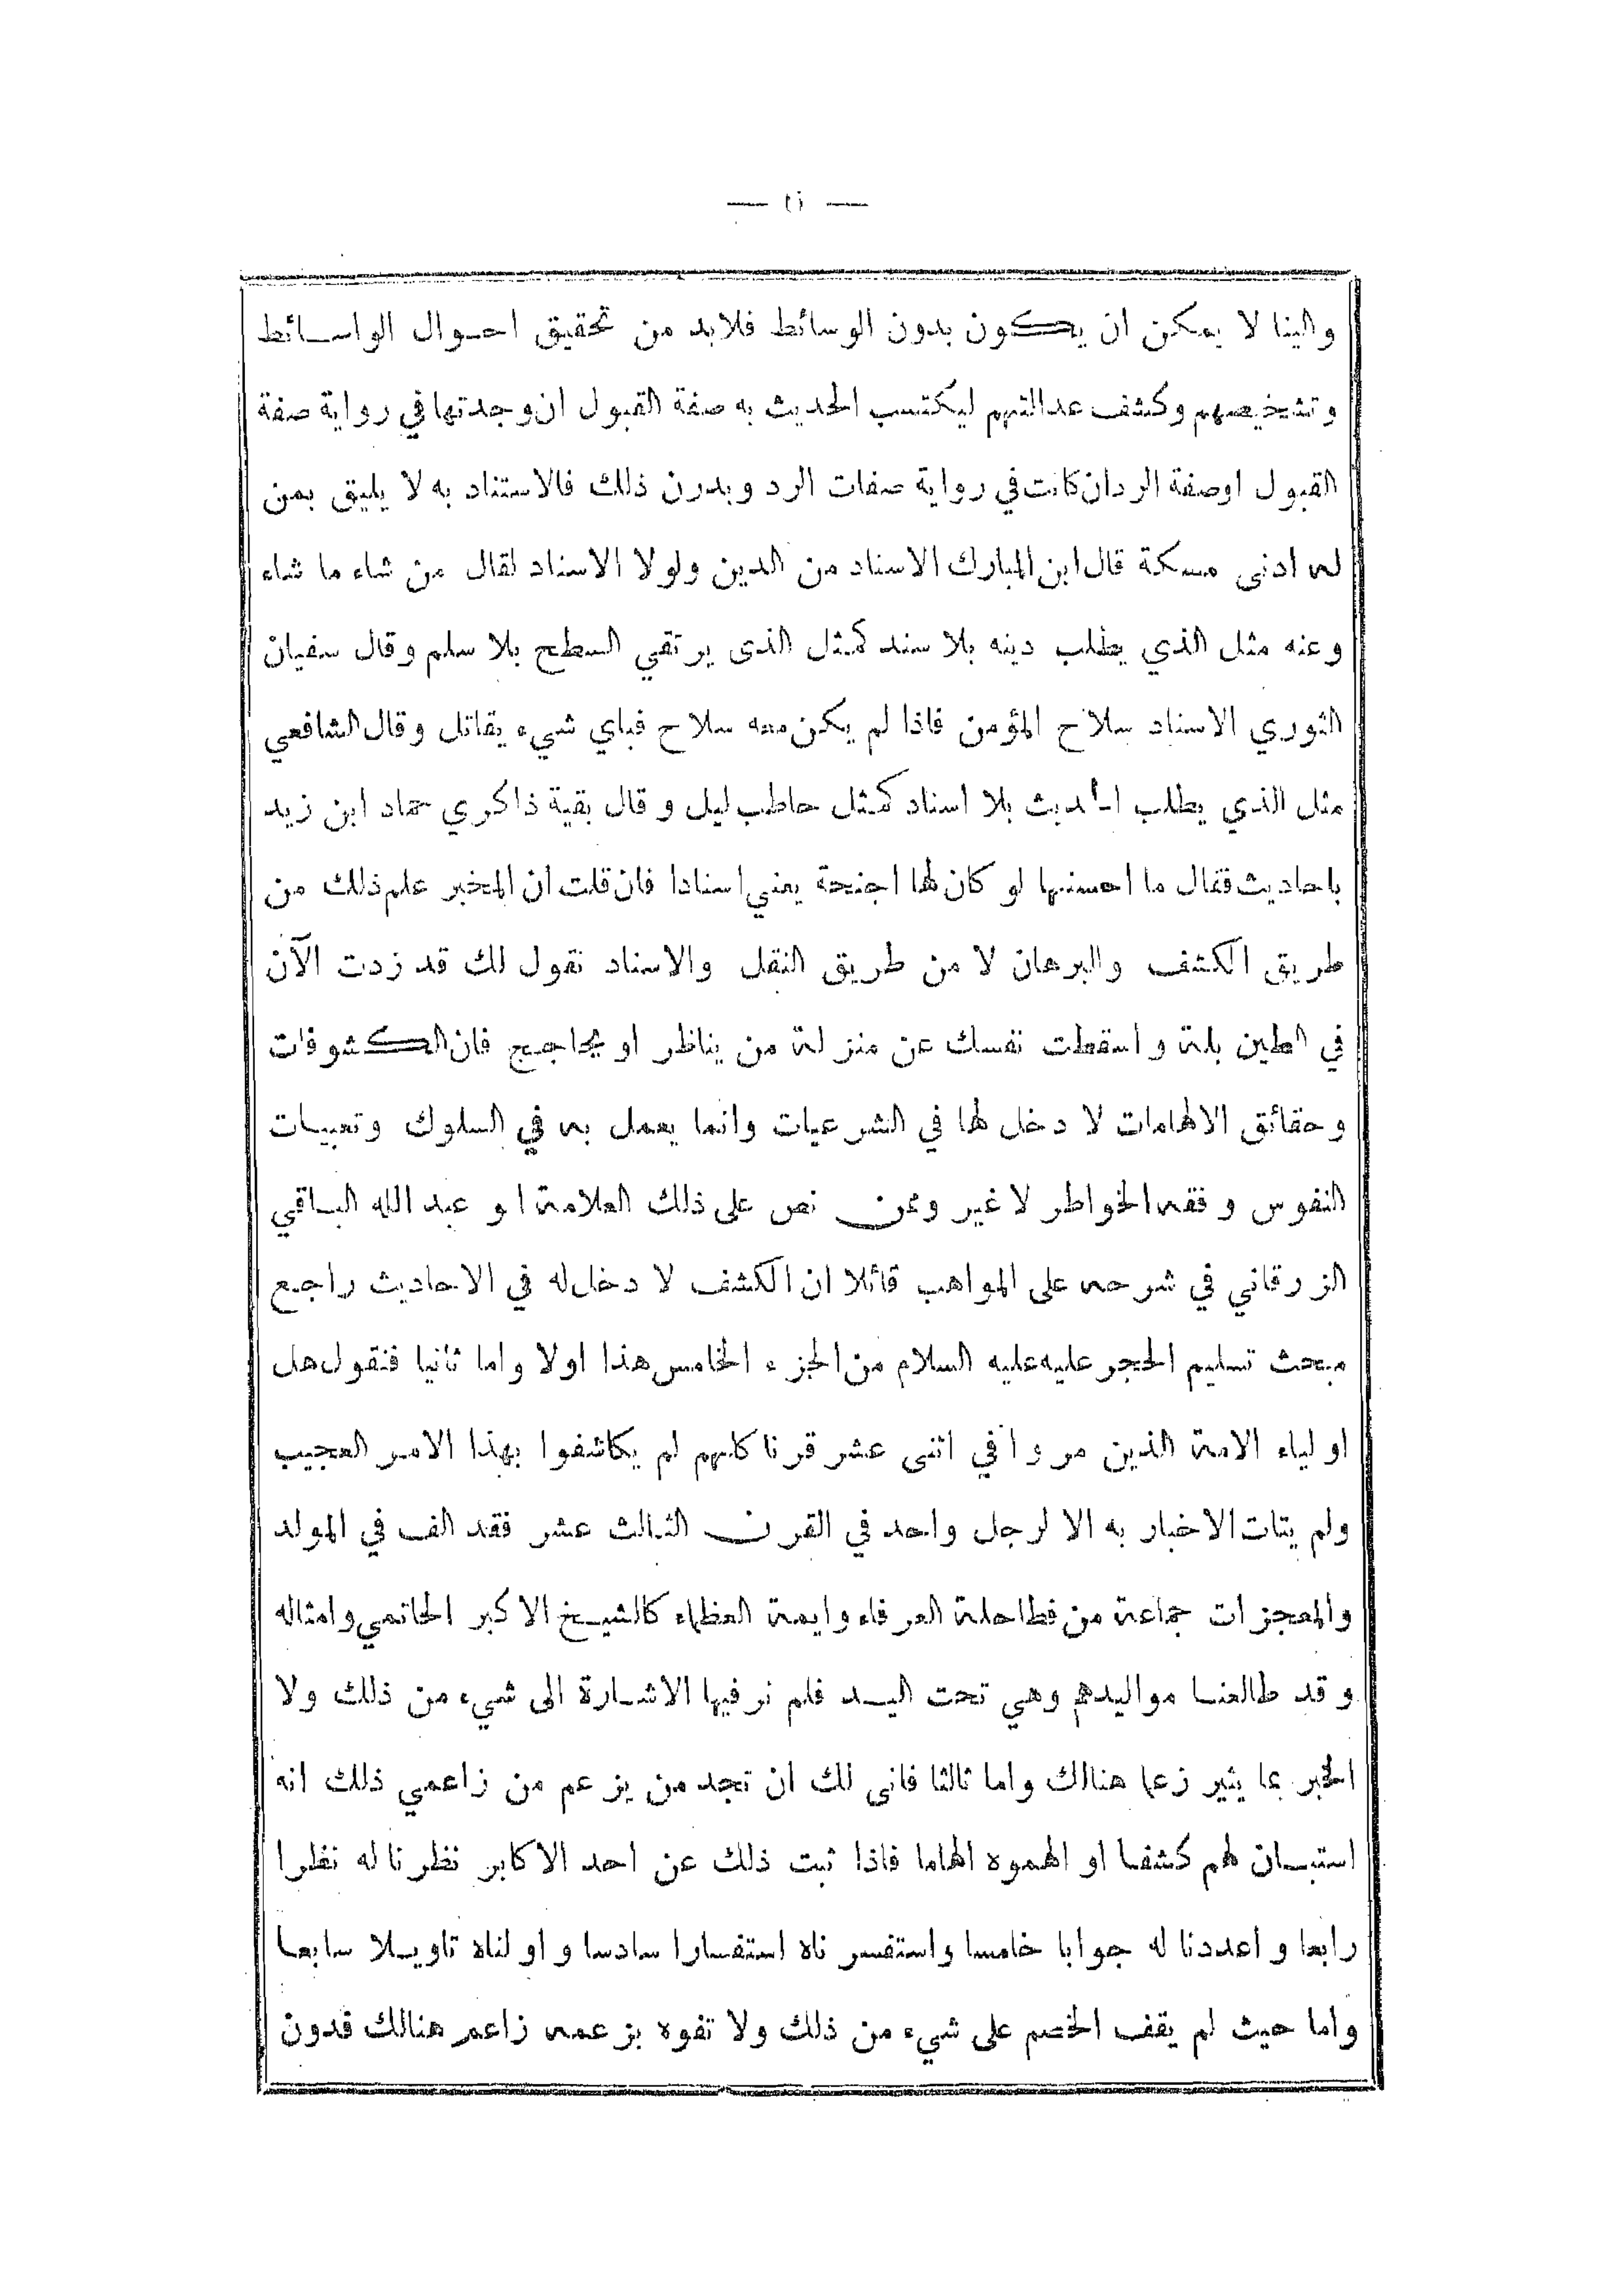 والينا لا يمكن ان يكون بدون الوسائط فلابد من تحقيق احوال الواسائط
وتشخيصهم وكشف عدالتهم ليكتسب الحديث به صفة القبول ان وجدتها في رواية صفة
القبول اوصفة الردان كانت في رواية صفات الرد وبدرن ذلك فالاستناد به لا يليق بمن
له ادنى مسكة قال ابن المبارك الاسناد من الدين ولولا الاسناد لقال من شاء ما شاء
وعنه مثل الذي يطلب دينه بلا سند كمثل الذى يرتقي السطح بلا سلم وقال سفيان
الثوري الاسناد سلاح المؤمن فاذا لم يكن معه سلاح فباي شيء يقاتل وقال الشافعي
مثل الذي يطلب الحديث بلا اسناد كمثل حاطب ليل وقال بقية ذاكري حماد ابن زيد
باحاديث فقال ما احسنها لو كان لها اجنحة يعني اسنادا فان قلت ان المخبر علم ذلك من
طريق الكشف والبرهان لا من طريق النقل والاسناد نقول لك قد زدت الآن
في الطين بلة واسقطت نفسك عن منزلة من يناظر او يحاجج فان الكشوفات
وحقائق الالهامات لا دخل لها في الشرعيات وانما يعمل به في السلوك وتعبيات
النفوس وفقه الخواطر لا غير وممن نص على ذلك العلامة او عبد الله الباقي
الزرقاني في شرحه على المواهب قائلا ان الكشف لا دخل له في الاحاديث راجع
مبحث تسليم الحجر عليه عليه السلام من الجزء الخامس هذا اولا واما ثانيا فنقول هل
اولياء الامة الذين مروا في اثنى عشر قرنا كلهم لم يكاشفوا بهذا الامر العجيب
ولم يتات الاخبار به الا لرجل واحد في القرن الثالث عشر فقد الف في المولد
والمعجزات جماعة من فطاحلة العرفاء وايمة العظماء كالشيخ الاكبر الحاتمي وامثاله
وقد طالعنا مواليدهم وهي تحت اليد فلم نر فيها الاشارة الى شيء من ذلك ولا
الخبر بما يثير زعما هنالك واما ثالثا فانى لك ان تجد من يزعم من زاعمي ذلك انه
استبان لهم كشفا او الهموه الهاما فاذا ثبت ذلك عن احد الاكابر نظرنا له نظرا
رابعا واعددنا له جوابا خامسا واستفسرناه استفسارا سادسا واولناه تاويلا سابعا
واما حيث لم يقف الخصم على شيء من ذلك ولا تفوه بزعمه زاعم هنالك فدون